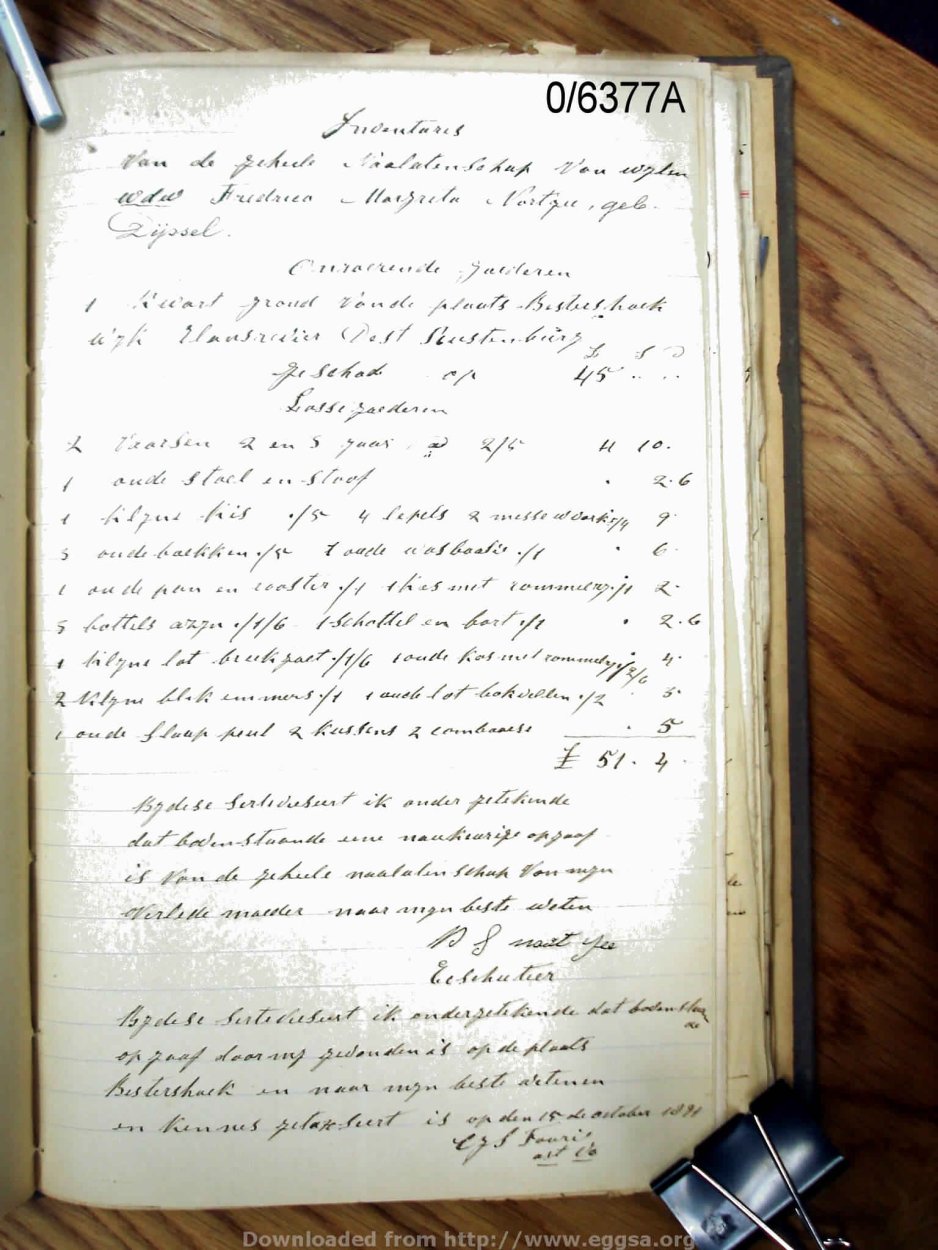 0/6377A
Inventaris
Van de geheele Naalatenschap Van wylen
wdw Fredrica Margreta Nortjee, geb.
Dijssel.
Onroerende goederen
1 Kwart grond Van de plaats Besters hoek
wyk Elandsrivier Dest Rustenburg
£ S D
geschad op 45 .. ..
Losse goederen
2 Vaarsen 2 en 3 jaar a 2/5 4 10.
1 oude stoel en stoof . 2.6
1 kilyne kis ./5 4 lepels 2 messe 9
3 oude 1 oude ./1 . 6.
1 oude pan en rooster ./1 1 kis met rommelry ./1 2.
5 bottels azyn ./1/6 1 schottel en bort ./1 . 2.6
1 kilyne lot breekgoet ./1/6 1 oude kos met rommelry ./2/6 4.
2 kilyne blek emmers ./1 1 oude lot bokvellen ./2 . 3.
1 oude slaap peul 2 kussens 2 combaarse . 5
£ 51. 4.
Bydese ik onder getekende
dat bovenstaande eene naukeurige opgaaf
is Van de geheele naalatenschap Van myn
Verlede moeder naar myn beste weten
Bydese ik ondergetekende dat bovenstaan
de
opgaaf door my gevonden is op de plaats
Bestershoek en naar myn beste wetenen
en kennes is op den 15 de october 1891
C J S Fourie